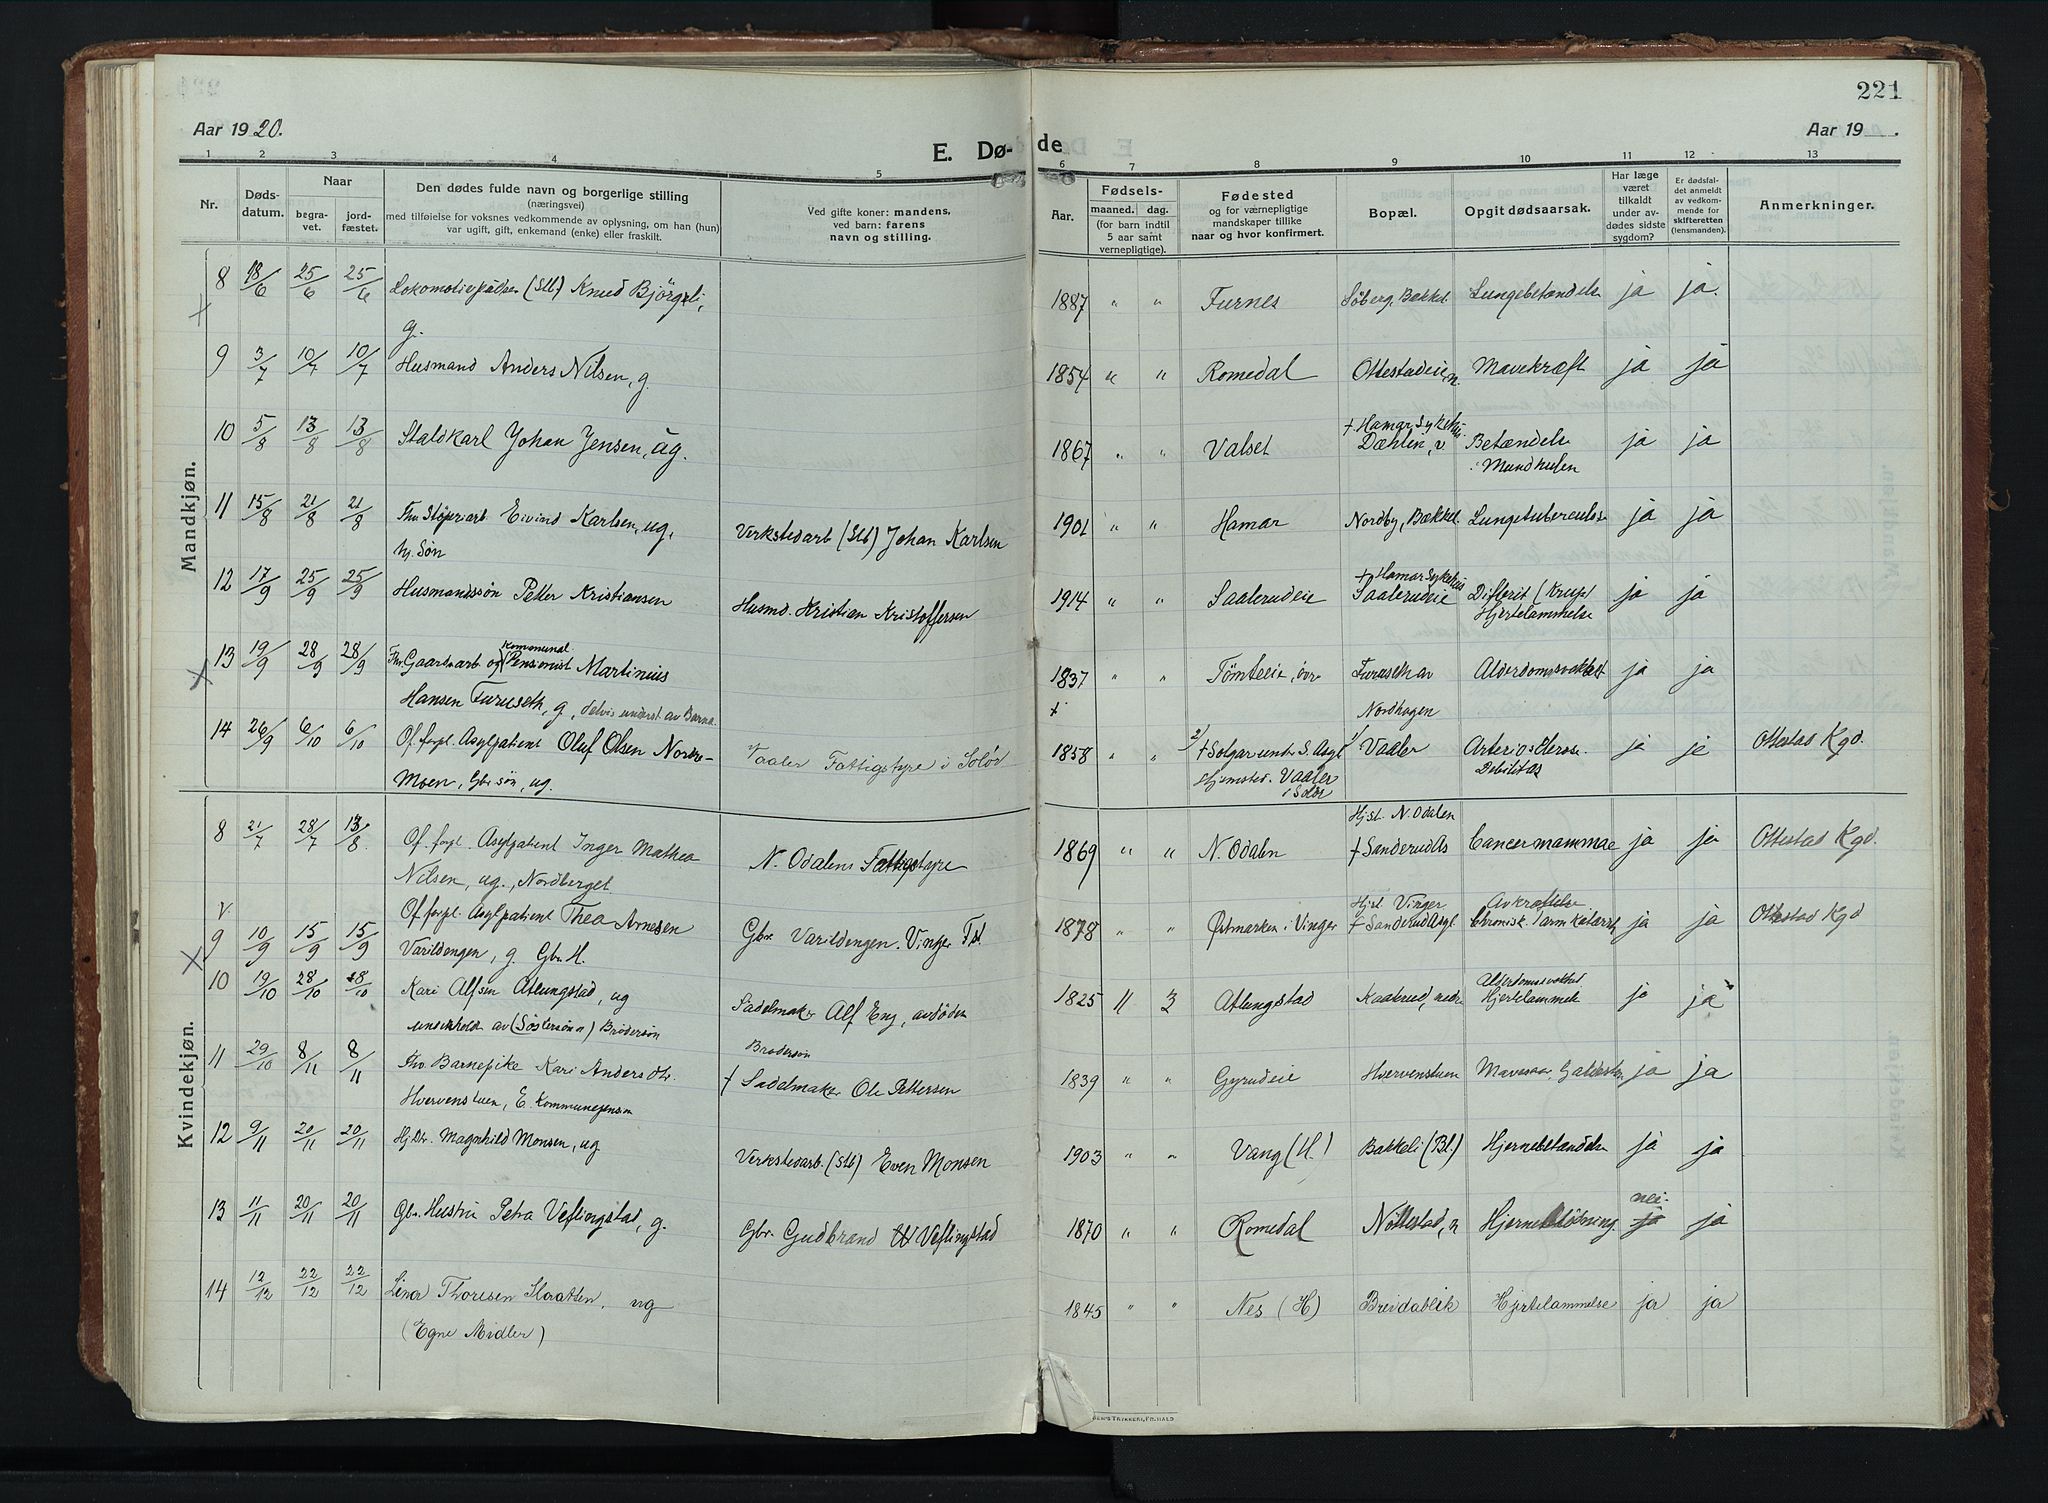 221
Aar 1920.
Aar 19
E. Dø-
de
1 2 3 4 5 6 7 8 9 10 11 12 13
Nr.
Døds-
datum.
Naar
begra-
vet.
jord-
fæstet.
Den dødes fulde navn og borgerlige stilling
(næringsvei)
med tilføielse for voksnes vedkommende av oplysning, om han (hun)
var ugift, gift, enkemand (enke) eller fraskilt.
Ved gifte koner: mandens,
ved barn: farens
navn og stilling.
Aar.
Fødsels-
maaned. dag.
(for barn indtil
5 aar samt
vernepligtige).
Fødested
og for værnepligtige
mandskaper tillike
naar og hvor konfirmert.
Bopæl.
Opgit dødsaarsak.
Har læge
været
tilkaldt
under av-
dødes sidste
sygdom?
Er dødsfal-
det anmeldt
av vedkom-
mende for
skifteretten
(lensmanden).
Anmerkninger.
Mandkjøn.
8 18/6 25/6 25/6 Lokomotivpudser (Stb) Knud Bjørgeli, 1887 " " Furnes Søberg, Bækkel. Lungebetændelse ja ja.
g.
9 3/7 10/7 10/7 Husmand Anders Nilsen, g. 1854 " " Romedal Ottestadeie, n. Mavekræft ja ja
10 5/8 13/8 13/8 Staldkarl Johan Jensen, ug. 1867 " " Valset + Hamar Sykehus
Dæhlen, v. Betændelse ja ja
i Mundhulen
11 15/8 21/8 21/8 Fhv. Støperiarb. Eivind Karlsen, ug, Verkstedarb (Stb) Johan Karlsen 1901 " " Hamar Nordby, Bækkel. Lungetuberculose ja ja
hj. Søn
12 17/9 25/9 25/9 Husmandssøn Petter Kristiansen Husmd. Kristian Kristoffersen 1914 " " Saalerudeie + Hamar Sykehus
Saalerudeie Difterit (Krup) ja ja
Hjertelammelse
13 19/9 28/9 28/9 Fhv. Gaardarb og kommunal Pensionist Martinius 1837 " " Tømteeie, øvre Furuseth av Alderdomssvakhet ja ja
Hansen Furuseth, g, delvis underst. av Barna. + Nordhagen
14 26/9 6/10 6/10 Of. forpl. Asylpatient Oluf Olsen Nordre- Vaaler Fattigstyre i Solør 1858 " " 2/ + Solgar under S. Asyl 1/ Vaaler Arteriosklerose. ja ja Ottestad Kgd.
Moen, Gbr søn, ug. Hjemsted. Vaaler Debilitas
i Solør
Kvindekjøn.
8 21/7 28/7 13/8. Of. forpl. Asylpatient Inger Mathea N. Odalens Fattigstyre 1869 " " N. Odalen Hjst. N. Odalen
+ Sanderud As Cancer mammae ja ja Ottestad Kgd.
Nilsen, ug., Nordberget
9 10/9 15/9 15/9 Of. forpl. Asylpatient Thea Arnesen Gbr. Varildengen. Vinger Fst. 1878 " " Østmarken i Vinger Hjst. Vinger
+ Sanderud Asyl Avkræftelse
Chronisk Tarmkatarrh ja ja Ottestad Kgd
Varildengen, g. Gbr. H.
10 19/10 28/10 28/10 Kari Alfsen Atlungstad, ug Sadelmaker Alf Eng, avdøde 1825 11 3 Atlungstad Kaatrud, nedre Alderdomssvakhet
Hjertelammelse ja ja
underholdt av (Søstersønn) Brodersøn
11 29/10 8/11 8/11 Fhv. Barnepike Kari Andersdtr. Brodersøn
+ Sadelmaker Ole Pettersen 1839 " " Gyrudeie Hvervenstuen Mavesaar, Galdesten ja ja
Hvervenstuen, E. Kommunepension
12 9/11 20/11 20/11 Hj Dtr. Magnhild Monsen, ug Verkstedarb. (Stb) Even Monsen 1903 " " Vang (H.) Bakkeli (Bl.) Hjernebetændelse ja ja
13 11/11 20/11 20/11 Gbr. Hustru Petra Veflingstad, g. Gbr. Gudbrand Veflingstad 1870 " " Romedal Nøttestad, n Hjerneblødning nei ja ja
14 12/12 22/12 22/12 Lina Thoresen Slaatten, ug 1845 " " Nes (H) Breidablik Hjertelammelse ja ja
(Egne Midler)